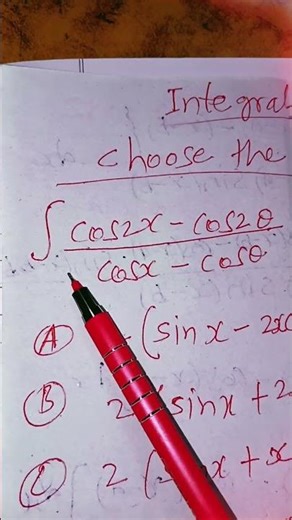 Integral
choose the
∫ cos2x - cos2θ
cosx - cosθ
(A) (sinx - 2x
(B) 2 sinx + 2
(C) 2 x + x